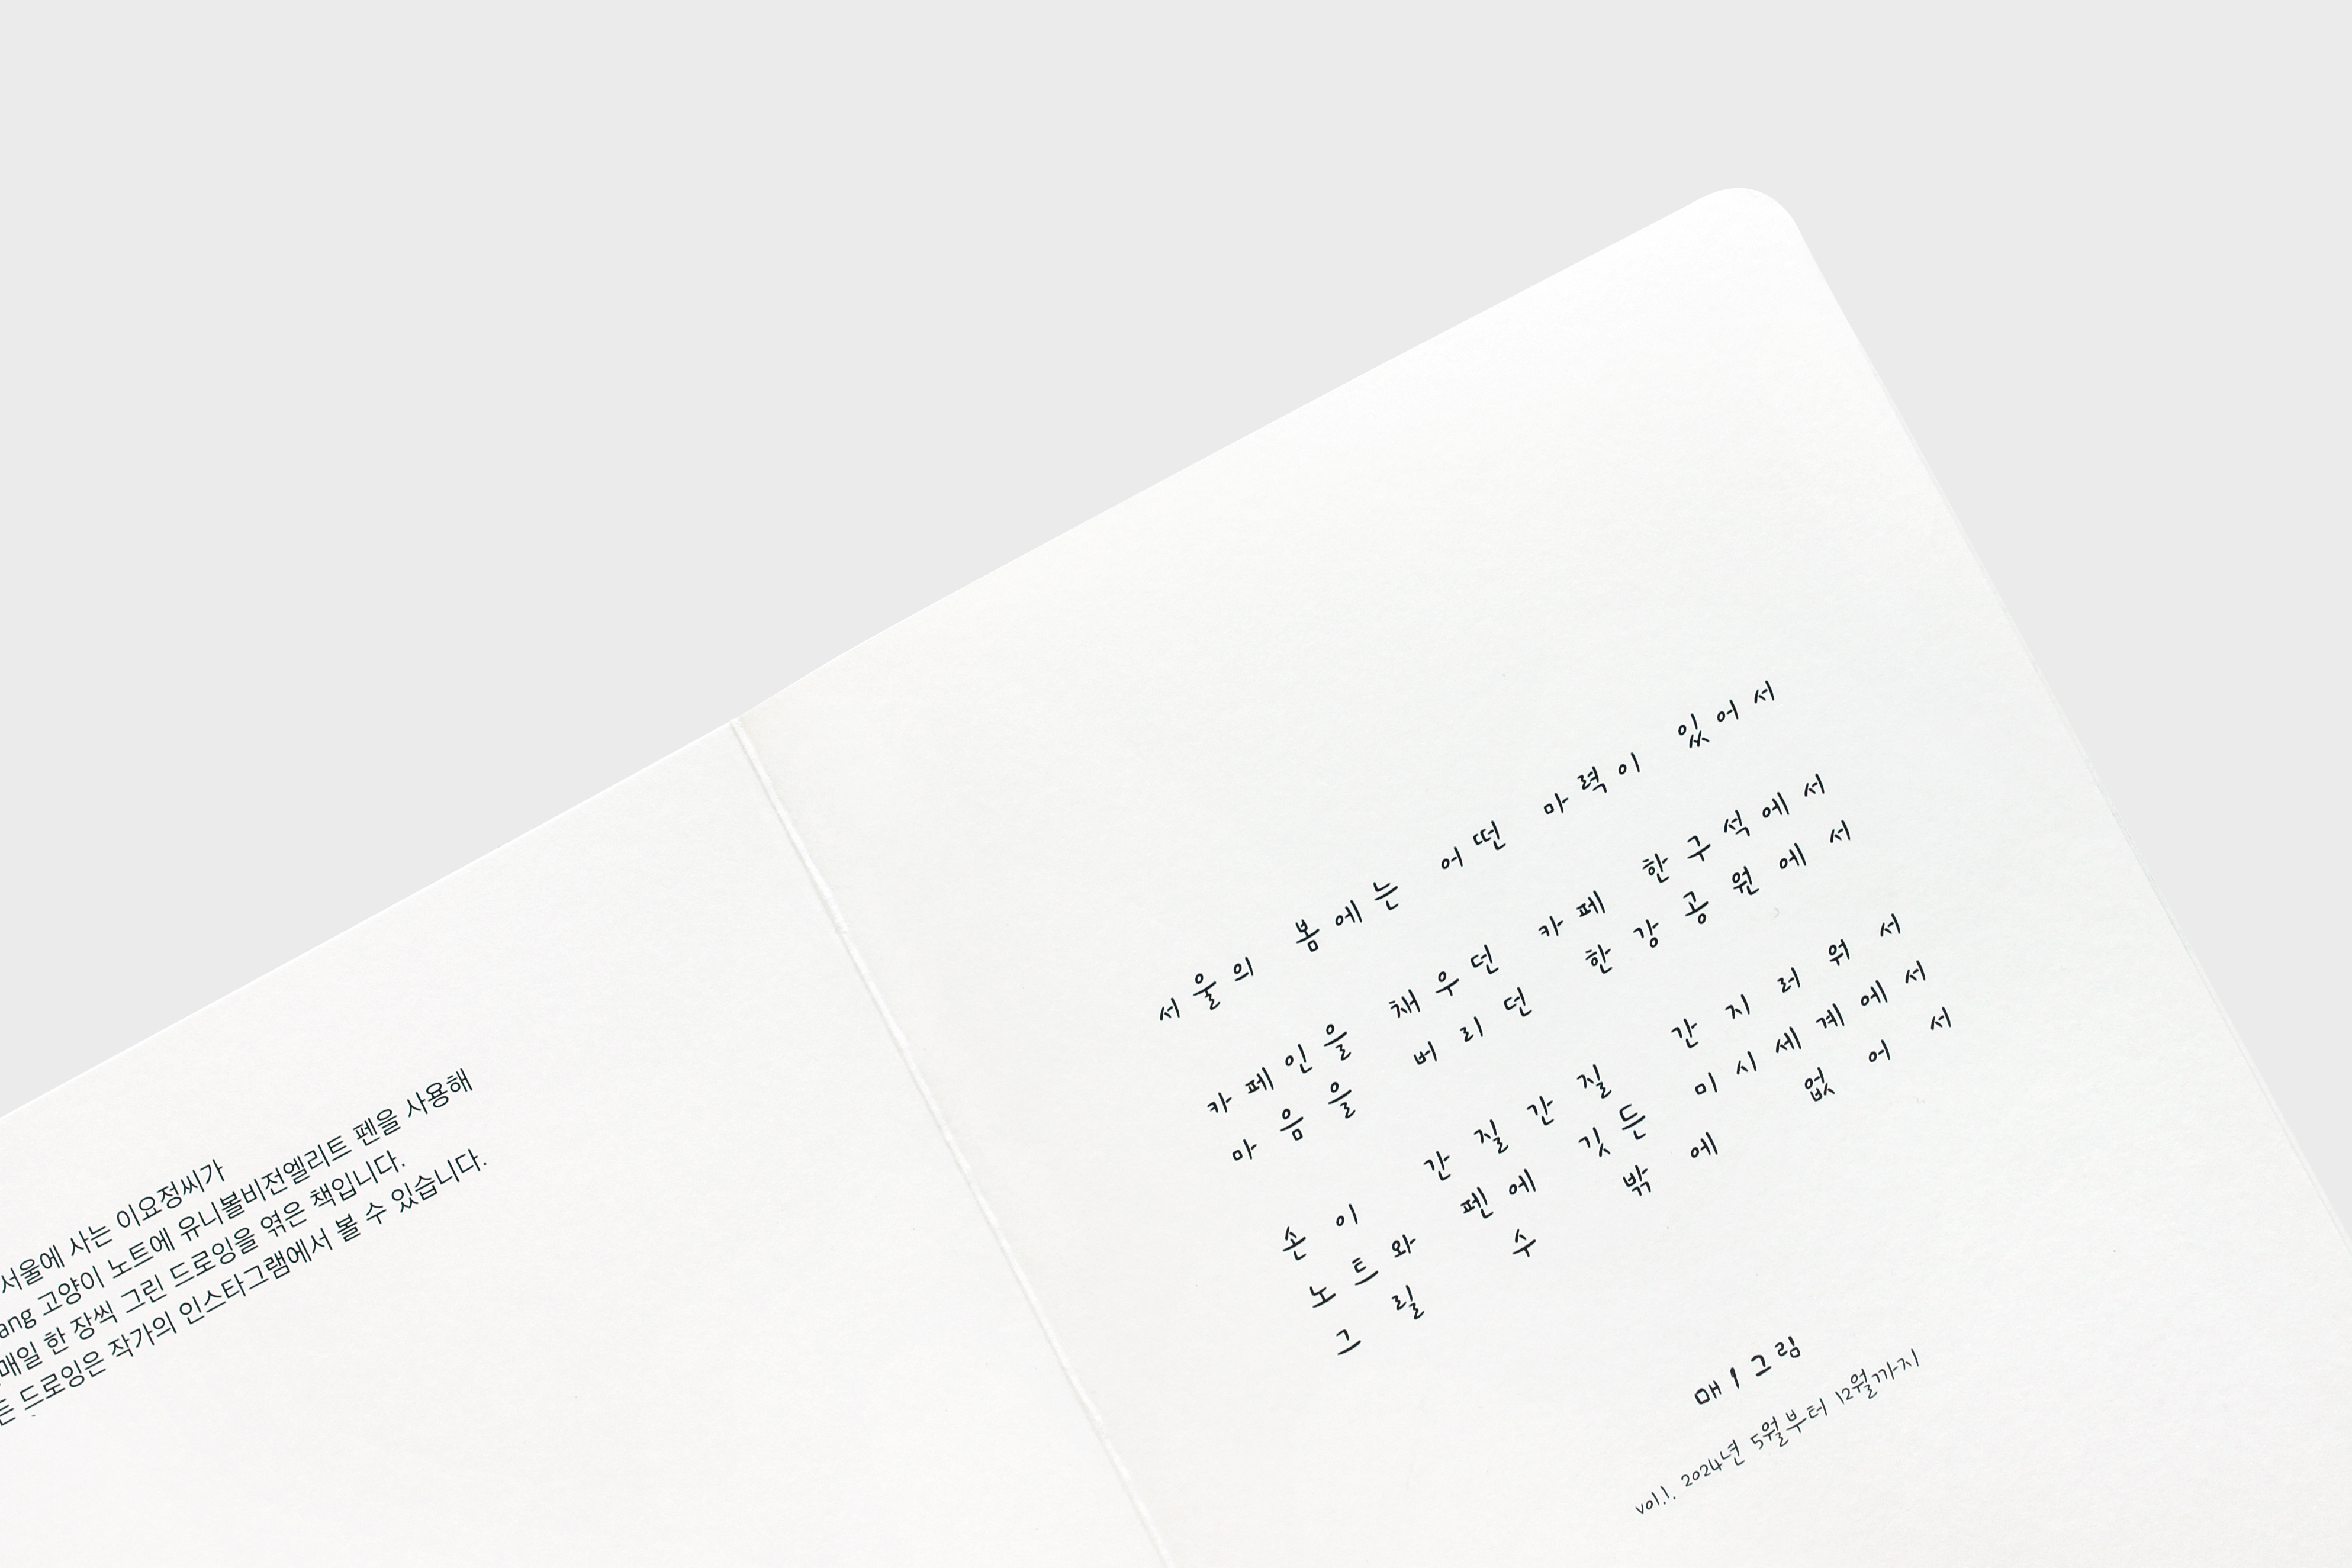 서울에 사는 이요정씨가
ang 고양이 노트에 유니볼비전엘리트 펜을 사용해
매일 한 장씩 그린 드로잉을 엮은 책입니다.
드로잉은 작가의 인스타그램에서 볼 수 있습니다.
서울의 봄에는 어떤 마력이 있어서
카페인을 채우던 카페 한구석에서
마음을 버리던 한강공원에서
손이 간질간질 간지러워서
노트와 펜에 깃든 미시세계에서
그릴 수 밖에 없어서
매1그림
vol.1. 2024년 5월부터 12월까지